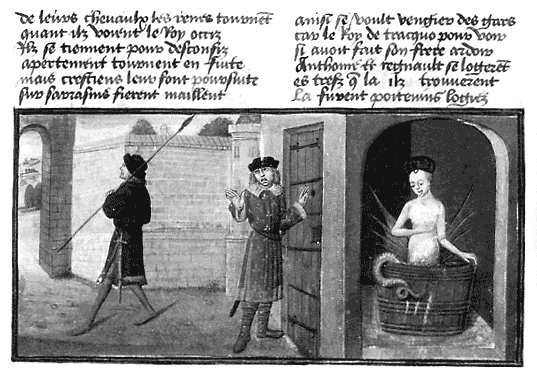 de leurs chevaulx les renes tournent
quant ilz voient le Roy occiz
Ilz se tiennent pour desconfiz
apertement tournent en fuite
mais crestiens leur font poursuite
sur sarrasins fierent maillent
ainsi se voult vengier des gars
car le Roy de tracquo pour voir
si auoit fait son frere ardoir
Anthoine et regnault se logerent
es trefz q̃ la ilz trouuerent
la furent poiteuins logiez